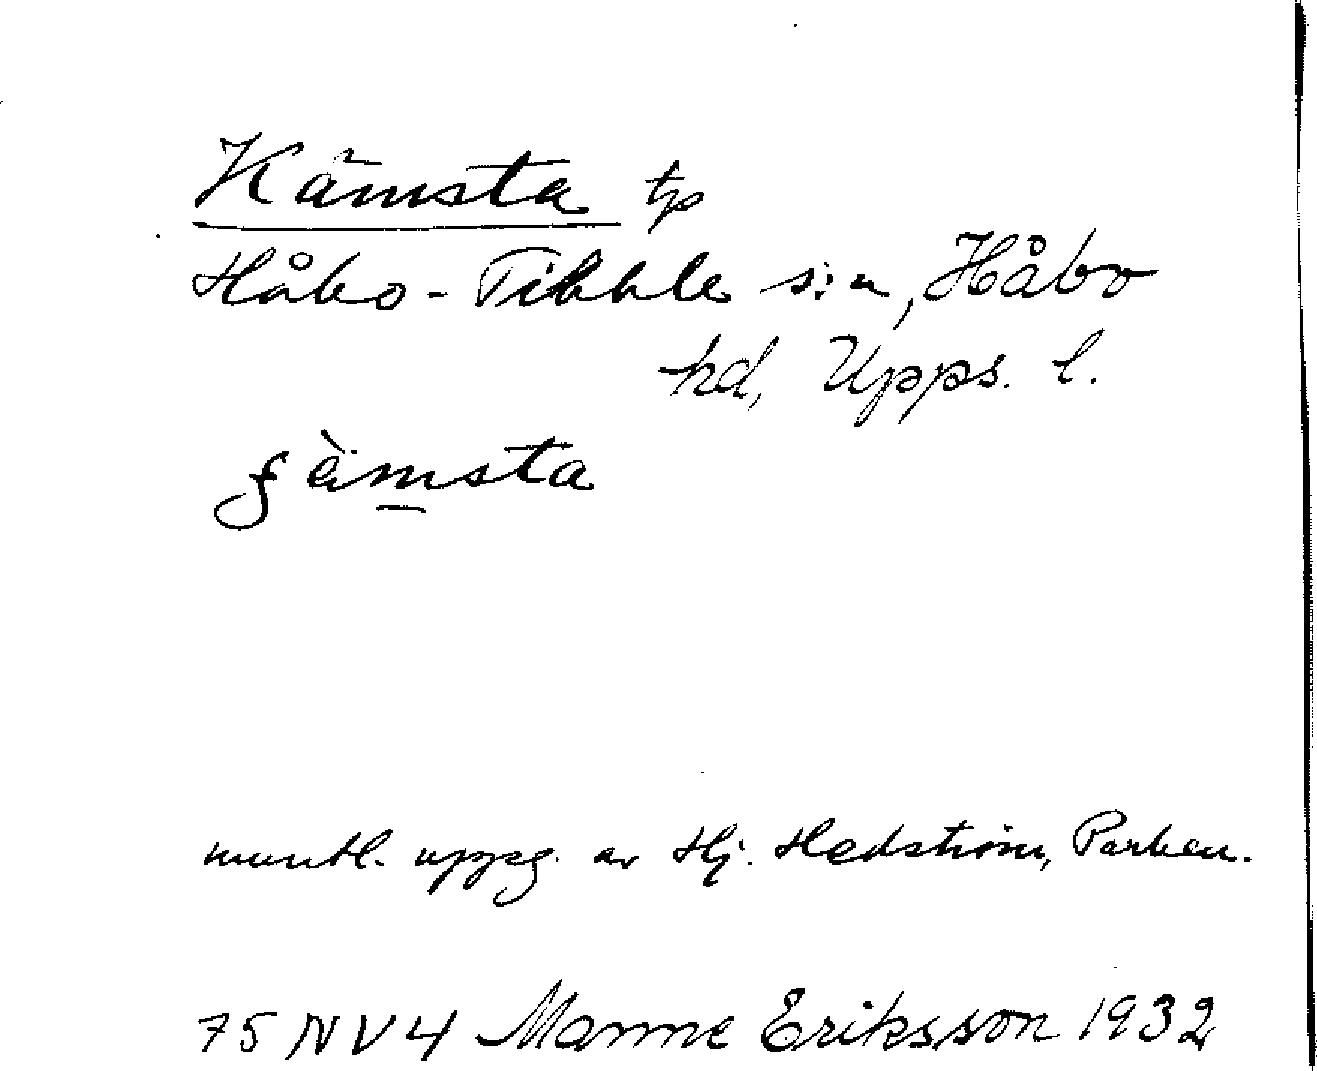 Kämsta tp
Håbo-Tibble s:n, Håbo
hd, Upps. l.
ʃä̀msta
muntl. uppg. av Hj. Hedström, Parken.
75 NV4 Manne Eriksson 1932